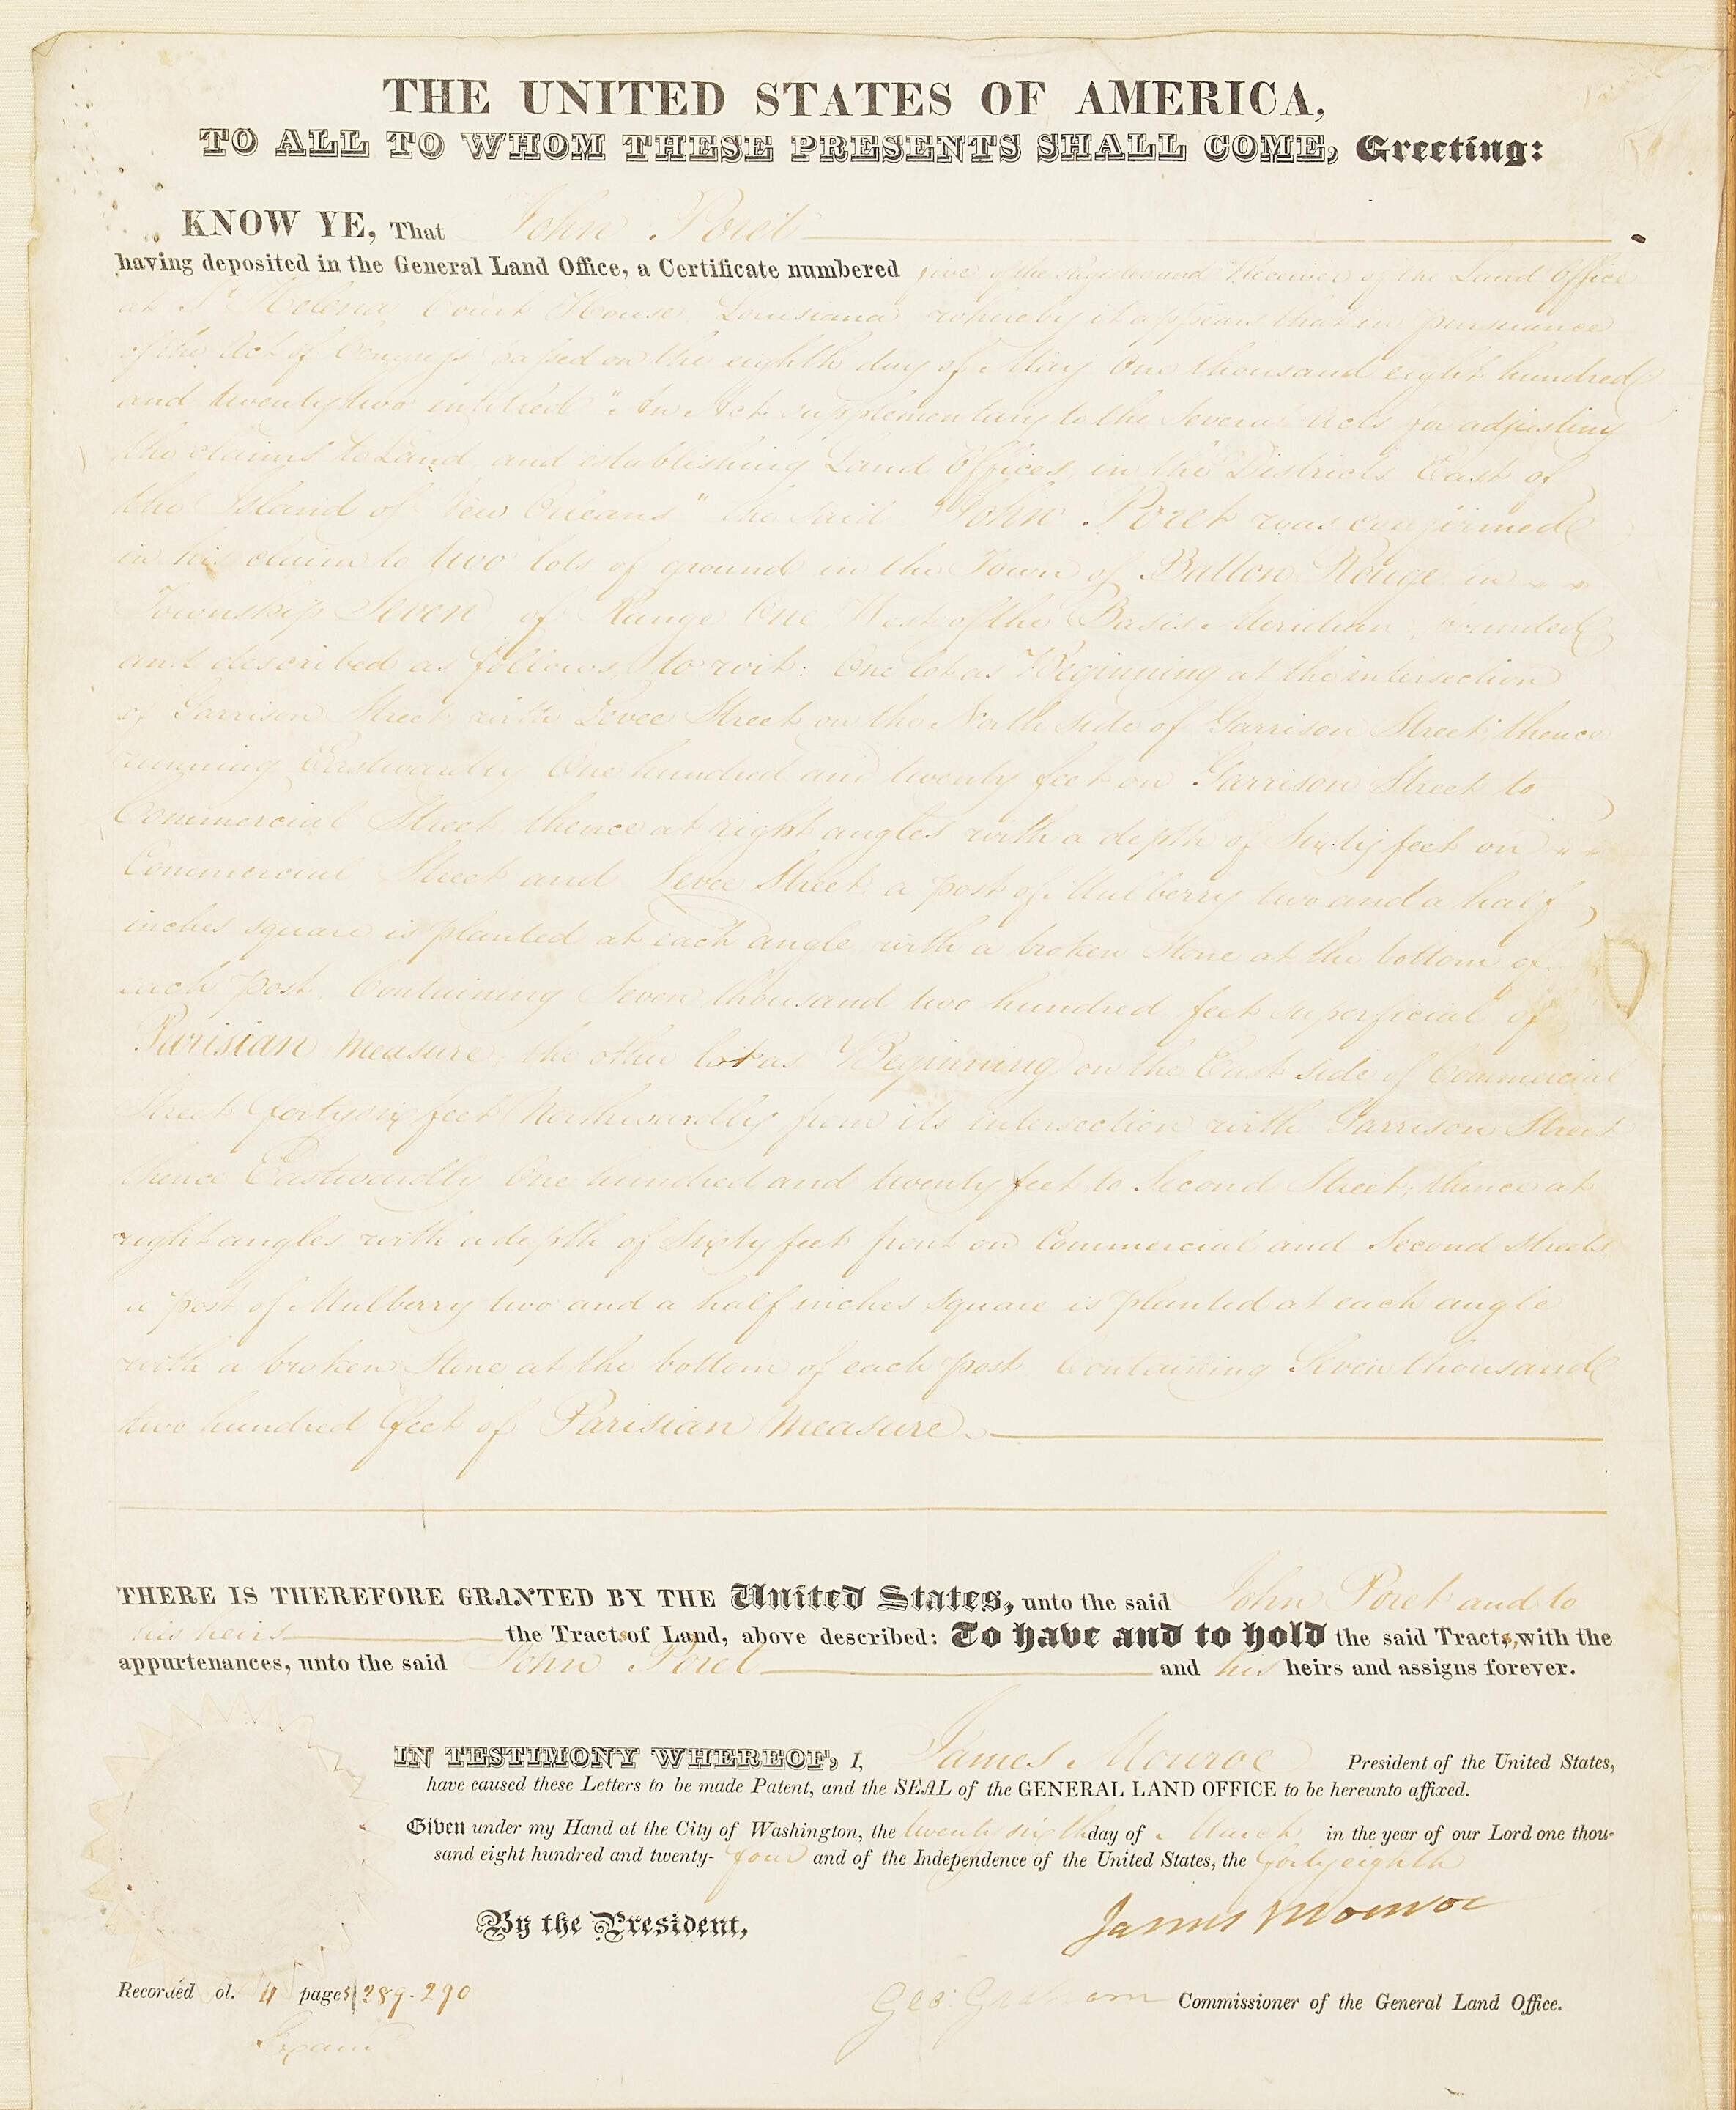 THE UNITED STATES OF AMERICA,
TO ALL TO WHOM THESE PRESENTS SHALL COME, Greeting:
KNOW YE, That John Poret
having deposited in the General Land Office, a Certificate numbered five of the Register and Receiver of the Land Office
at St Helena Court House, Louisiana whereby it appears that in pursuance
of the Act of Congress passed on the eighth day of May One thousand eight hundred
and twenty two entitled "An Act supplementary to the Several Acts for adjusting
the claims to Land and establishing Land Offices, in the Districts East of
the Island of New Orleans" the said John Poret was confirmed
in his claim to two lots of ground in the Town of Batton Rouge in
Township Seven of Range One West of the Basis Meridian, bounded
and described as follows, to wit: One lot as Beginning at the intersection
of Garrison Street with Levee Street on the North side of Garrison Street, thence
running Eastwardly One hundred and twenty feet on Garrison Street to
Commercial Street, thence at right angles with a depth of Sixty feet on
Commercial Street and Levee Street, a post of Mulberry two and a half
inches square is planted at each angle with a broken Stone at the bottom of
each post, Containing Seven thousand two hundred feet superficial of
Parisian measure, the other lot as Beginning on the East side of Commercial
Street forty six feet Northwardly from its intersection with Garrison Street
thence Eastwardly One hundred and twenty feet to Second Street, thence at
right angles with a depth of Sixty feet front on Commercial and Second Streets
a post of Mulberry two and a half inches square is planted at each angle
with a broken Stone at the bottom of each post Containing Seven thousand
two hundred feet of Parisian Measure.
THERE IS THEREFORE GRANTED BY THE United States, unto the said John Poret and to
his heirs the Tracts of Land, above described: To have and to hold the said Tracts, with the
appurtenances, unto the said John Poret and his heirs and assigns forever.
IN TESTIMONY WHEREOF, I, James Monroe President of the United States,
have caused these Letters to be made Patent, and the SEAL of the GENERAL LAND OFFICE to be hereunto affixed.
Given under my Hand at the City of Washington, the twenty sixth day of March in the year of our Lord one thou-
sand eight hundred and twenty- four and of the Independence of the United States, the forty eighth
James Monroe
By the President,
Recorded ol. 4 pages 289-290
Geo: Graham Commissioner of the General Land Office.
Examd